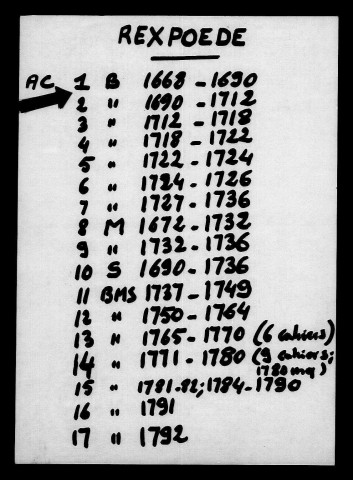 REXPOEDE
AC 1 B 1668 - 1690
2 " 1690 - 1712
3 " 1712 - 1718
4 " 1718 - 1722
5 " 1722 - 1724
6 " 1724 - 1726
7 " 1727 - 1736
8 M 1672 - 1732
9 " 1732 - 1736
10 S 1690 - 1736
11 BMS 1737 - 1749
12 " 1750 - 1764
13 " 1765 - 1770 (6 cahiers)
14 " 1771 - 1780 (9 cahiers;
1780 mq)
15 " 1781-82; 1784-1790
16 " 1791
17 " 1792